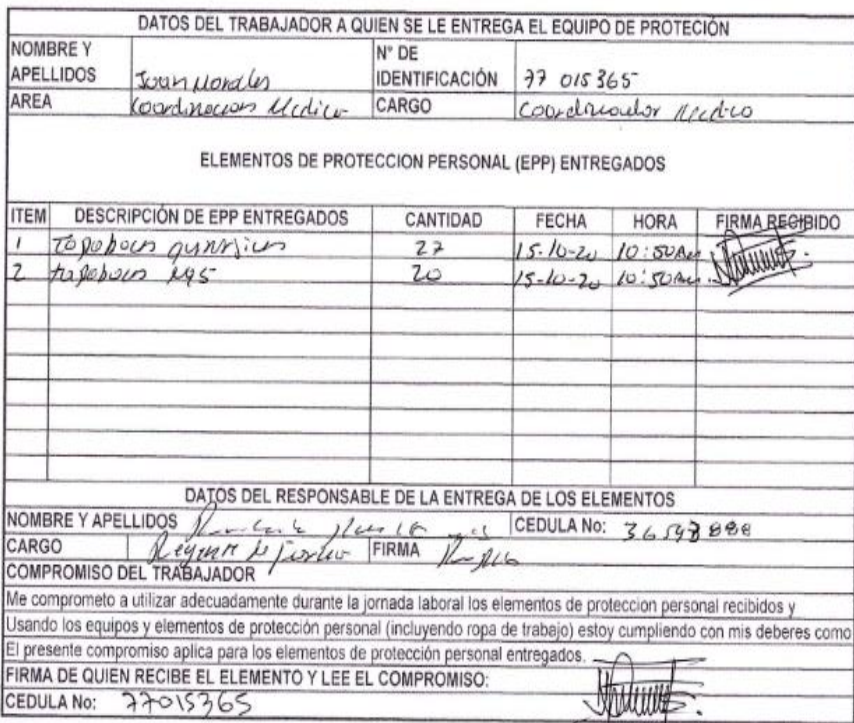 DATOS DEL TRABAJADOR A QUIEN SE LE ENTREGA EL EQUIPO DE PROTECIÓN
NOMBRE Y APELLIDOS Juan Morales N° DE IDENTIFICACIÓN 77 015365
AREA Coordinacion Medica CARGO Coordinador Medico
ELEMENTOS DE PROTECCION PERSONAL (EPP) ENTREGADOS
ITEM DESCRIPCIÓN DE EPP ENTREGADOS CANTIDAD FECHA HORA FIRMA RECIBIDO
1 Tapabocas 27 15-10-20 10:50Am
2 tapabocas N95 20 15-10-20 10:50Am.
DATOS DEL RESPONSABLE DE LA ENTREGA DE LOS ELEMENTOS
NOMBRE Y APELLIDOS CEDULA No:
CARGO Regente de FIRMA
COMPROMISO DEL TRABAJADOR
Me comprometo a utilizar adecuadamente durante la jornada laboral los elementos de proteccion personal recibidos y
Usando los equipos y elementos de protección personal (incluyendo ropa de trabajo) estoy cumpliendo con mis deberes como
El presente compromiso aplica para los elementos de protección personal entregados.
FIRMA DE QUIEN RECIBE EL ELEMENTO Y LEE EL COMPROMISO:
CEDULA No: 77015365